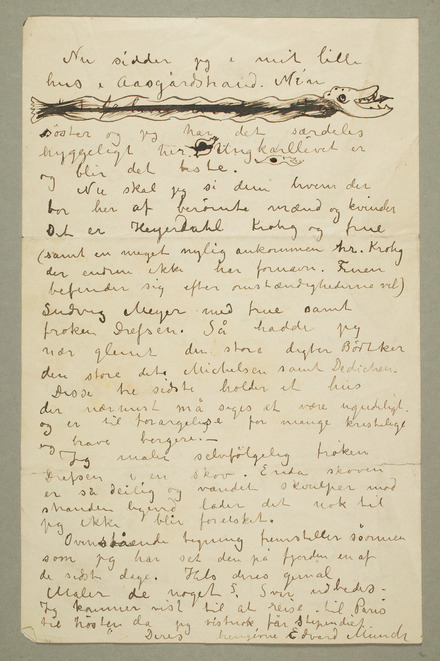 Nu sidder jeg i mit lille
hus i Aasgårdstrand. Min
søster og jeg har det særdeles
hyggeligt her. Ungkarllivet er
og blir det beste.
Nu skal jeg si dem hvem der
bor her af berømte mænd og kvinder
Det er Heyerdahl Krohg og frue
(samt en meget nylig ankommen hr. Krohg
der endnu ikke har fornavn. Fruen
befinder sig efter omstændighederne vel)
Ludvig Meyer med frue samt
frøken Drefsen. Så hadde jeg
nær glemt den store digter Bödtker
den store dito Michelsen samt Dedichen.
Disse tre sidste holder et hus
der nærmest må siges at være ugudeligt.
og er til forargelse for mange kristelige
og brave borgere.—
Jeg maler selvfølgelig frøken
Drefsen i en skov. Enda skoven
er så deilig og vandet skvulper mod
stranden lader det nok til
jeg ikke blir forelsket.
Ovenstående tegning fremstiller søormen
som jeg har set den på fjorden en af
de sidste dage. Hils deres gemal
Maler de noget? Svar udbedes.
Jeg kommer vist til at reise til Paris
til høsten da jeg vistnok får stipendiet
Deres hengivne Edvard Munch